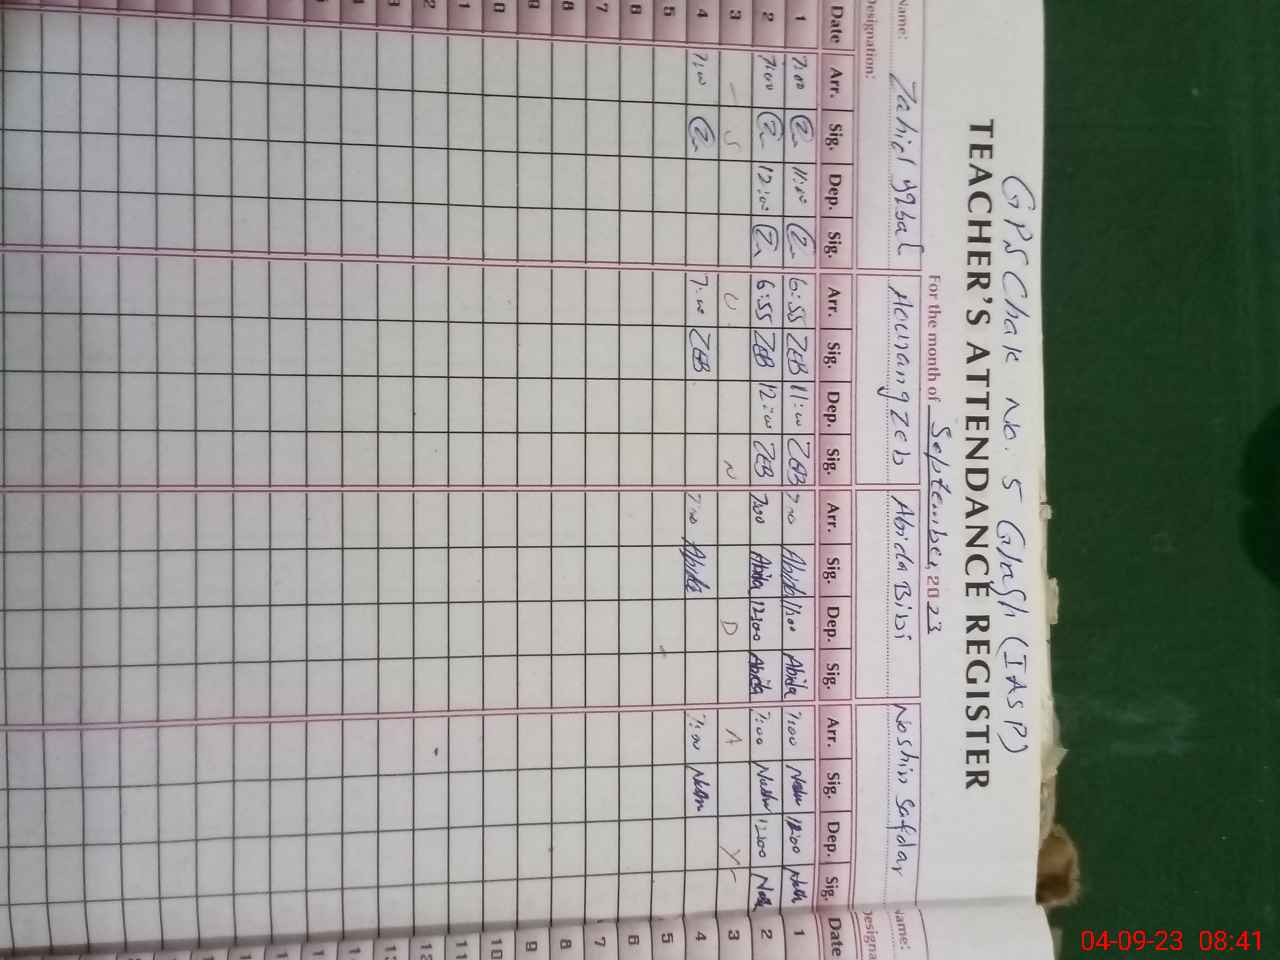 GPS Chak No. 5 Ghagh (IASP)
TEACHER'S ATTENDANCE REGISTER
For the month of September, 2023
Name: Zahid Iqbal Nourangzeb Abida Bibi Noshin Safdar Name:
Designation: Designa
Date Arr. Sig. Dep. Sig. Arr. Sig. Dep. Sig. Arr. Sig. Dep. Sig. Arr. Sig. Dep. Sig. Date
1 7:00 11:00 6:55 ZEB 11:00 ZEB 7:00 Abida 11:00 Abida 7:00 1
2 7:00 12:00 6:55 ZEB 12:00 ZEB 7:00 Abida 12:00 Abida 7:00 12:00 2
3 - S U N D A Y 3
4 7:00 7:00 ZEB 7:00 Abida 7:00 4
5 5
6 6
7 7
8 8
9 9
10 10
11 11
12 12
04-09-23 08:41